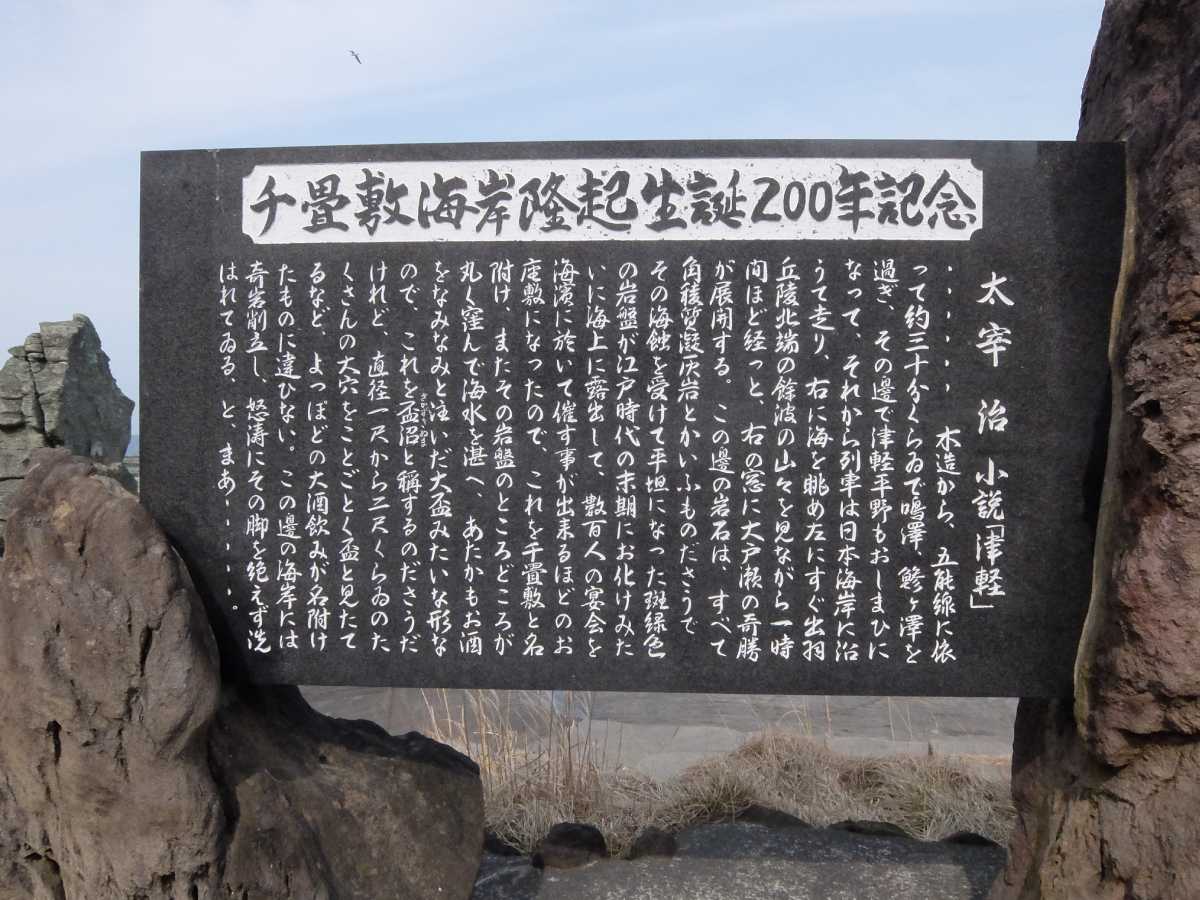 千畳敷海岸隆起生誕200年記念
太宰治 小説「津軽」
・・・・・・木造から、五能線に依
って約三十分くらゐで鳴澤、鰺ヶ澤を
過ぎ、その邊で津軽平野もおしまひに
なって、それから列車は日本海岸に沿
うて走り、右に海を眺め左にすぐ出羽
丘陵北端の餘波の山々を見ながら一時
間ほど経つと、右の窓に大戸瀬の奇勝
が展開する。この邊の岩石は、すべて
角稜質凝灰岩とかいふものださうで
その海蝕を受けて平坦になった斑緑色
の岩盤が江戸時代の末期にお化けみた
いに海上に露出して、数百人の宴会を
海濱に於いて催す事が出来るほどのお
座敷になったので、これを千畳敷と名
附け、またその岩盤のところどころが
丸く窪んで海水を湛へ、あたかもお酒
をなみなみと注いだ大盃みたいな形な
ので、これを盃沼と稱するのださうだ
さかずきぬま
けれど、直径一尺から二尺くらゐのた
くさんの大穴をことごとく盃と見たて
るなど、よっぽどの大酒飲みが名附け
たものに違ひない。この邊の海岸には
奇岩削立し、怒涛にその脚を絶えず洗
はれてゐる、と、まあ・・・・・。